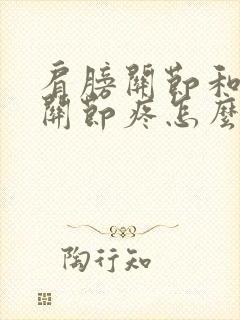 肩膀關節和
關節疼怎麼
陶行知